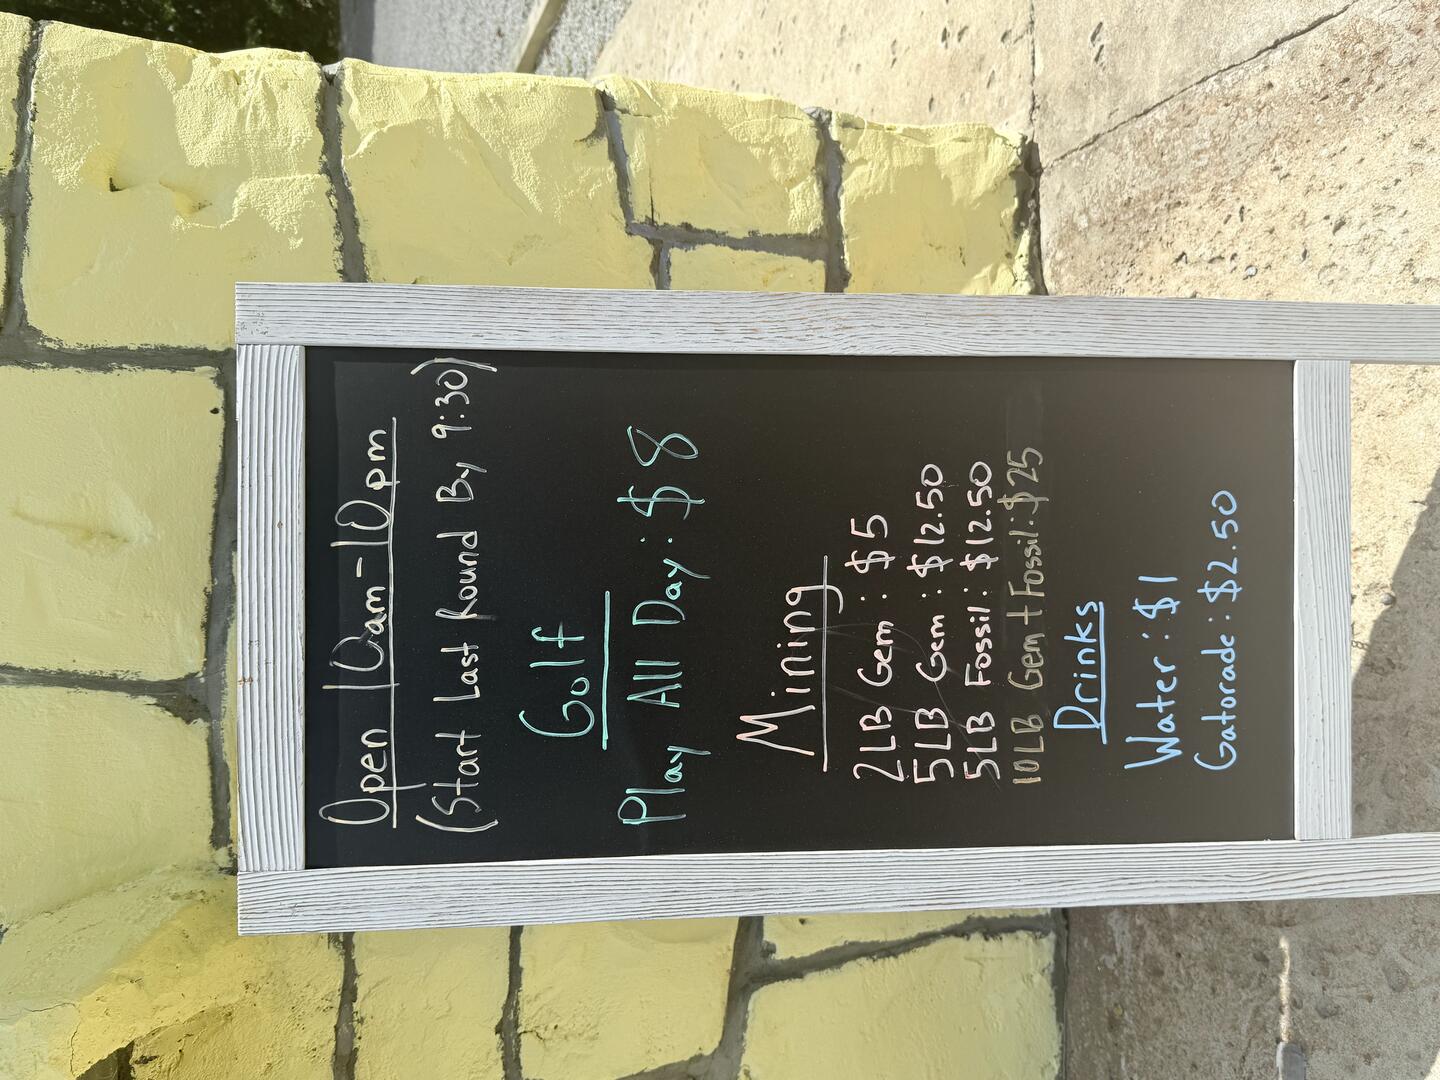 Open 10am-10pm
(Start Last Round By 9:30)
Golf
Play All Day: $8
Mining
2LB Gem: $5
5LB Gem: $12.50
5LB Fossil: $12.50
10LB Gem + Fossil: $25
Drinks
Water: $1
Gatorade: $2.50